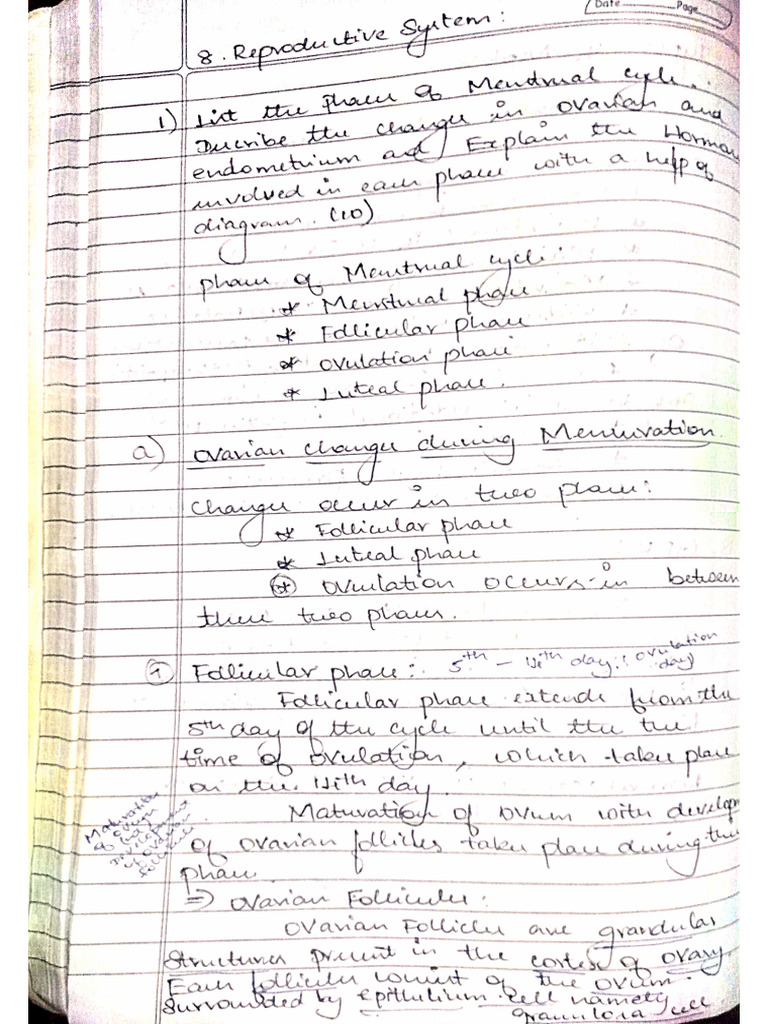 Date Page
8. Reproductive System:
1) List the Phases of Menstrual cycle.
Describe the changes in Ovarian and
endometrium and Explain the Hormon
involved in each phase with a help of
diagram. (10)
phases of Menstrual cycle:
* Menstrual phase
* Follicular phase
* Ovulation phase
* Luteal phase.
a) Ovarian changes during Menstruation
Changes occur in two phase:
* Follicular phase
* Luteal phase
* Ovulation occurs in between
these two phases.
Follicular phase: 5th - 14th day: ovulation day
Follicular phase extends from the
5th day of the cycle until the the
time of ovulation, which takes place
on the 14th day.
Maturation of ovum with develop
of ovarian follicles takes place during this
phase.
Maturation
of ovum
Development
of ovarian
follicles
⇒ Ovarian Follicules:
Ovarian Follicles are grandular
Structures present in the cortex of ovary.
Each follicles consist of the ovum
surrounded by epithelium cell namely
granulosa cell